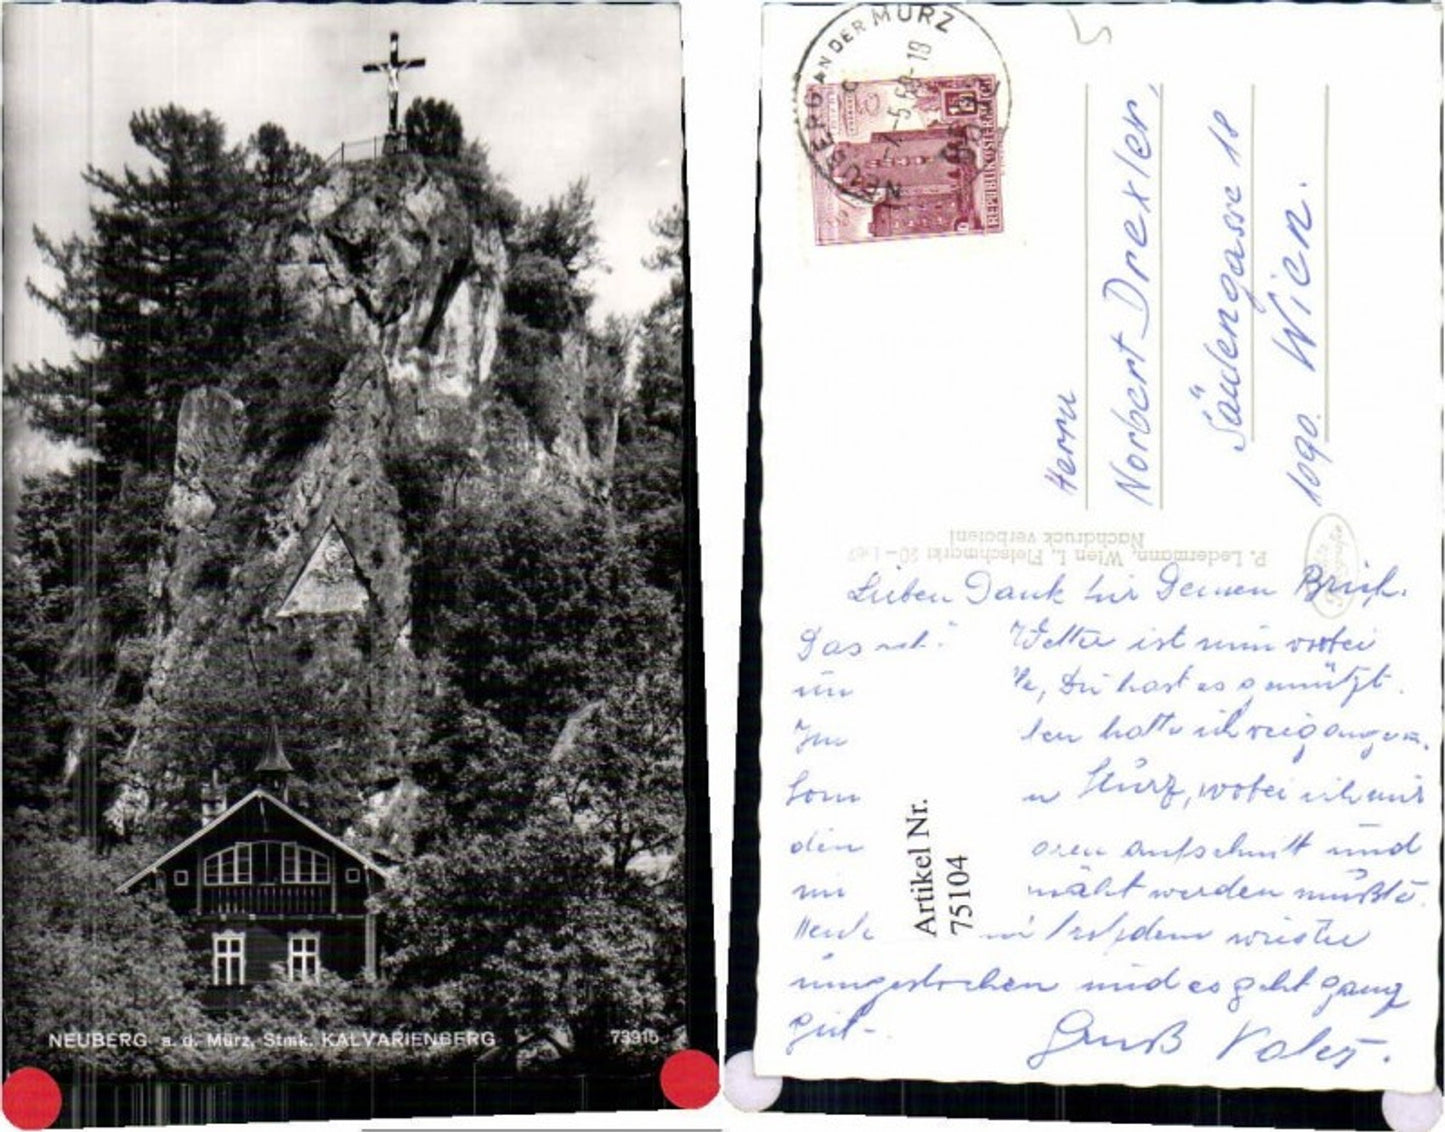 NEUBERG a. d. Mürz, Stmk. KALVARIENBERG 73915
NEUBERG AN DER MÜRZ
REPUBLIK ÖSTERREICH
Herrn
Norbert Drexler,
Säulengasse 18
1090 Wien.
P. Ledermann, Wien I., Fleischmarkt 20
Nachdruck verboten!
Lieben Dank für Deinen Brief.
Das Wetter ist nun vorbei
Du hast es genützt.
hatte ich vergangen
Sturz, wobei ich mir
den aufschnitt und
genäht werden mußte.
Heute trotzdem wieder
umgestochen und es geht ganz
gut.
Gruß
Artikel Nr.
75104